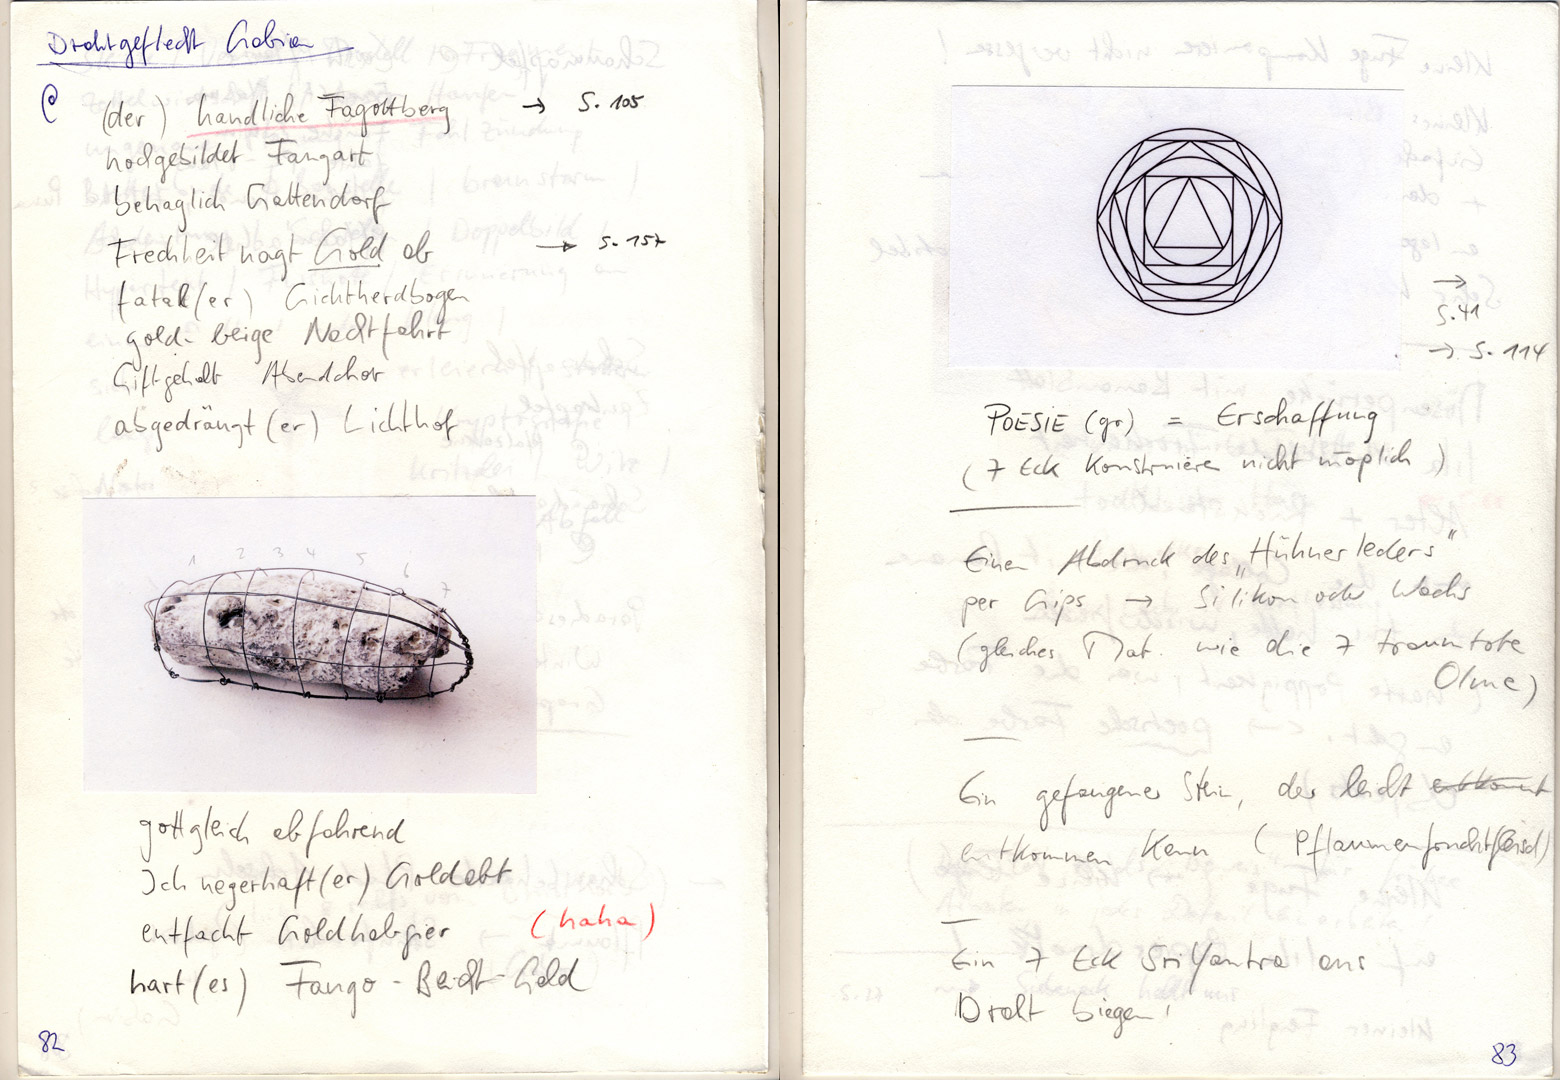 Drahtgeflecht Gabion
@ (der) handliche Fagottberg → S. 105
hochgebildet Fangart
behaglich Gattendorf
Frechheit nagt Gold ab → S. 157
fatal(er) Gichtherdbogen
gold-beige Nachtfahrt
Giftgehalt Abendchor
abgedrängt(er) Lichthof
1 2 3 4 5 6 7
gottgleich abfahrend
Ich negerhaft(er) Goldabt
entfacht Goldhabgier (haha)
hart(es) Fango-Beicht-Gold
82
→
S. 41
→ S. 114
POESIE (gr) = Erschaffung
(7 Eck Konstruieren nicht möglich)
Einen Abdruck des „Hühnerleders“
per Gips → Silikon oder Wachs
(gleiches Mat. wie die 7 traumtote
Olme)
Ein gefangener Stein, der leicht entkommt
entkommen kann (Pflaumenfruchtfleisch)
Ein 7 Eck SriYantra aus
Draht biegen!
83